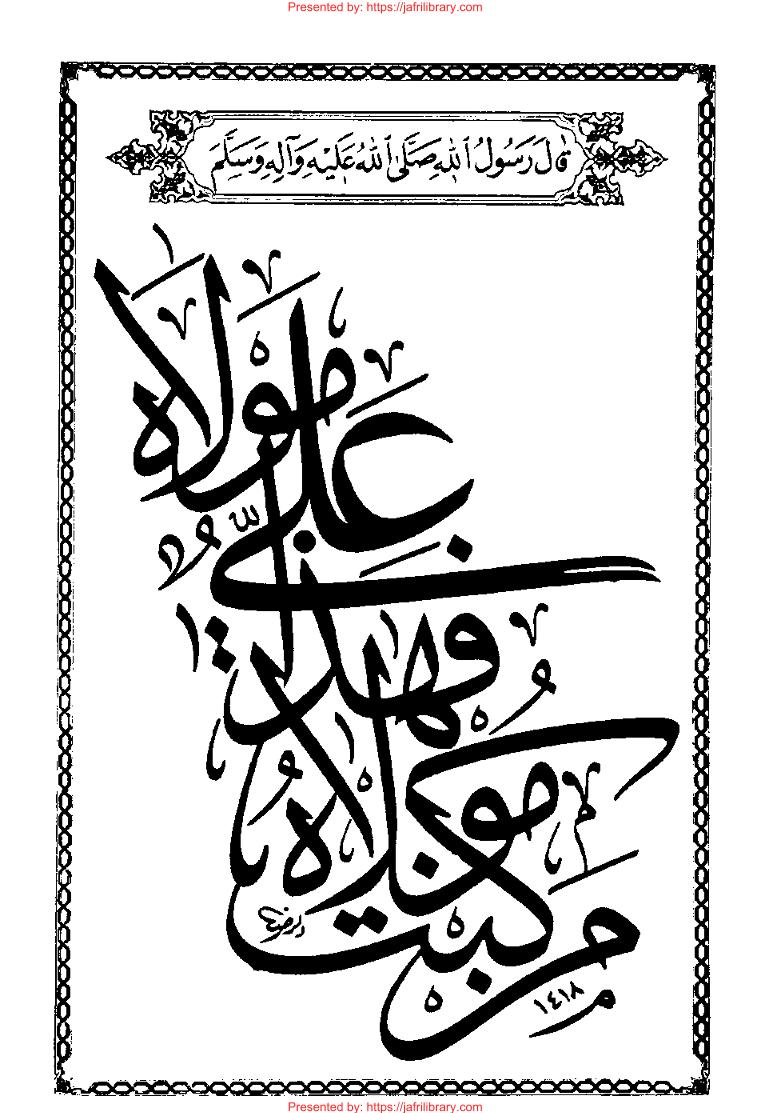 Presented by: https://jafrilibrary.com
قَالَ رَسُولُ ٱللهِ صَلَّى ٱللهُ عَلَيْهِ وَآلِهِ وَسَلَّمَ
مَنْ كُنْتُ مَوْلَاهُ فَهٰذَا عَلِيٌّ مَوْلَاهُ
١٤١٨
Presented by: https://jafrilibrary.com